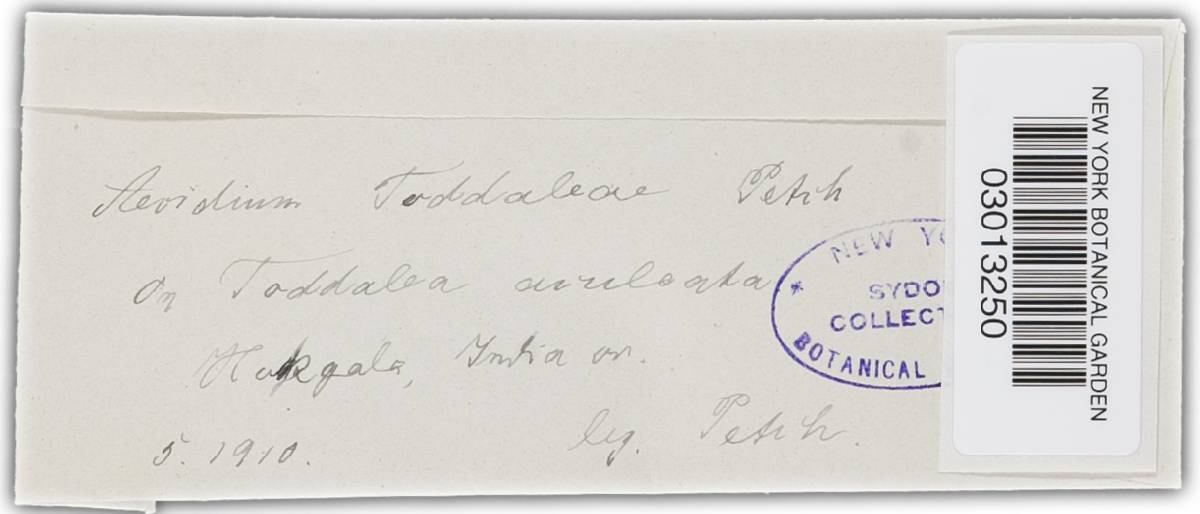 Aecidium Toddaleae Petch
On Toddalea aculeata
Hakgala, India or.
5. 1910. leg. Petch.
NEW YO
SYDO
COLLECT
* BOTANICAL
NEW YORK BOTANICAL GARDEN
03013250